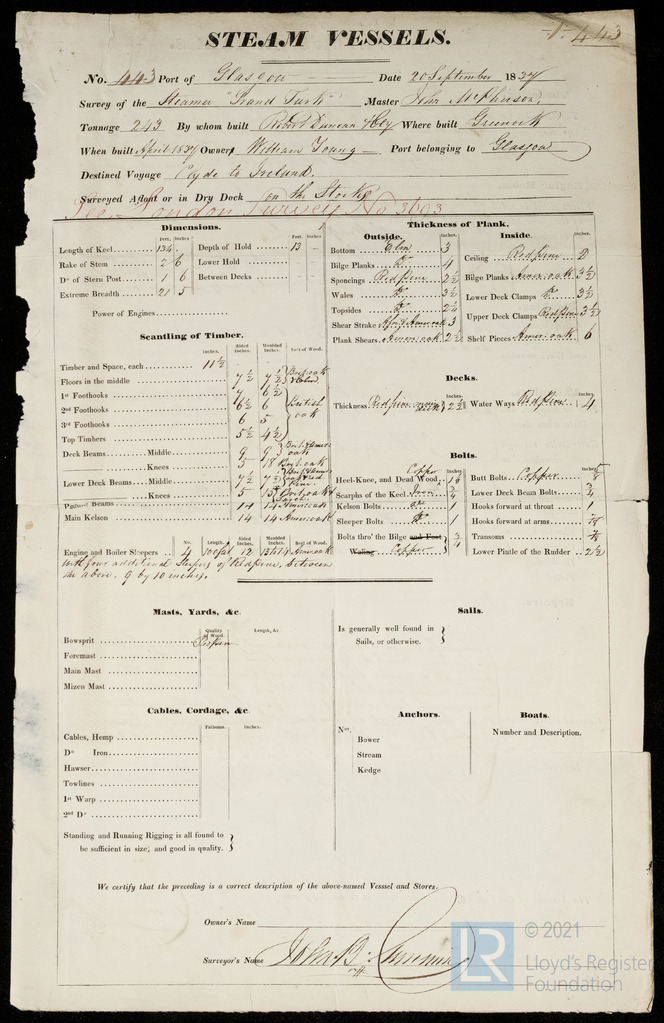 443
STEAM VESSELS.
No. 443 Port of Glasgow Date 20 September 1837
Survey of the Steamer "Grand Turk" Master John McPherson,
Tonnage 243 By whom built Robert Duncan & Coy Where built Greenock
When built April 1837 Owner William Young Port belonging to Glasgow
Destined Voyage Clyde to Ireland.
Surveyed Afloat or in Dry Dock on the Stocks
See London Survey No 3693
Dimensions.
Feet. Inches
Length of Keel 134
Rake of Stem 2 6
Do of Stern Post 1 6
Extreme Breadth 21 5
Feet. Inches
Depth of Hold 13
Lower Hold
Between Decks
Power of Engines
Scantling of Timber.
Inches. Sided Inches. Moulded Inches. Sort of Wood.
Timber and Space, each 11½
Floors in the middle 7½ 7½ Brit. oak & Elm
1st Foothooks 7 6½
2nd Foothooks 6½ 6 British oak
3rd Foothooks 6 5
Top Timbers 5½ 4½
Deck Beams Middle 9 9 Brit & Amer oak
Knees 5 18 Brit. oak
Lower Deck Beams Middle 7½ 7½ Brit & Amer oak & red Pine
Knees 5 15 Brit. oak & Larch
Paddle Beams 14 14 Amer. oak
Main Kelson 14 14 Amer. oak
No. Length. Sided Inches. Moulded Inches. Sort of Wood.
Engine and Boiler Sleepers 4 12 Amer. oak
with four additional Sleepers of Redpine, between
the above. 9 by 10 inches.
Thickness of Plank.
Outside. Inches.
Bottom Elm 3
Bilge Planks Do 4
Sponcings Red pine 2½
Wales Do 3½
Topsides Do 2¼
Shear Strake 3
Plank Shears Amer. oak 2½
Inside. Inches.
Ceiling Red pine 2
Bilge Planks Amer. oak 3½
Lower Deck Clamps Do 3½
Upper Deck Clamps Red pine 3½
Shelf Pieces Amer. oak 6
Decks.
Inches. Inches.
Thickness Red pine 2½ Water Ways Red pine 4
Bolts.
Inches. Inches.
Heel-Knee, and Dead Wood, Copper
Scarphs of the Keel Iron ¾
Kelson Bolts Do 1
Sleeper Bolts Do 1
Bolts thro' the Bilge and Foot ¾
Waling Copper
Butt Bolts Copper
Lower Deck Beam Bolts ¾
Hooks forward at throat 1
Hooks forward at arms ⅞
Transoms ⅞
Lower Pintle of the Rudder 2½
Masts, Yards, &c.
Quality of Wood. Length, &c.
Bowsprit
Foremast
Main Mast
Mizen Mast
Sails.
Is generally well found in
Sails, or otherwise.
Cables, Cordage, &c.
Fathoms. Inches.
Cables, Hemp
Do Iron
Hawser
Towlines
1st Warp
2nd Do
Anchors.
Nos.
Bower
Stream
Kedge
Boats.
Number and Description.
Standing and Running Rigging is all found to
be sufficient in size, and good in quality.
We certify that the preceding is a correct description of the above-named Vessel and Stores.
Owner's Name
Surveyor's Name John B. Cumming
LR © 2021
Lloyd's Register
Foundation